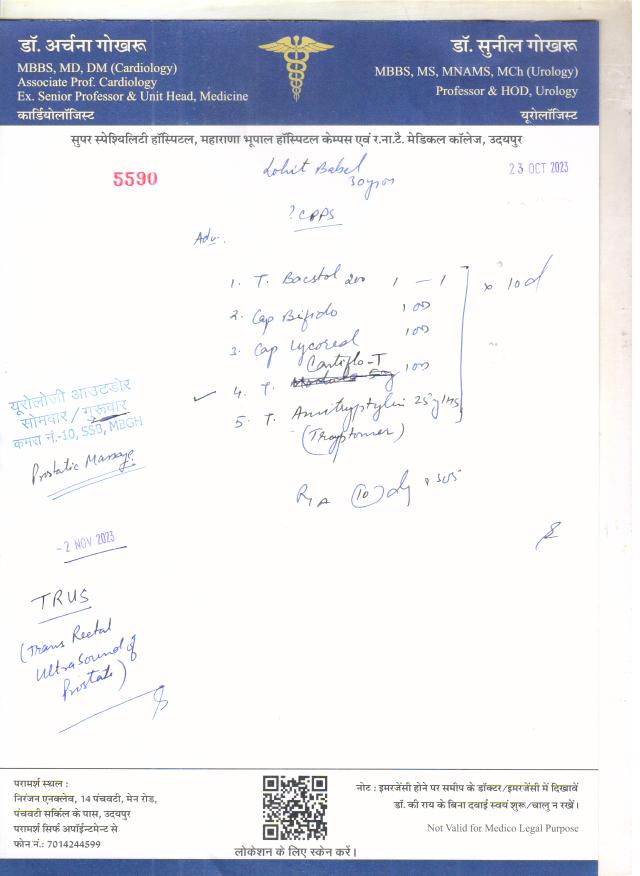 डॉ. अर्चना गोखरू
MBBS, MD, DM (Cardiology)
Associate Prof. Cardiology
Ex. Senior Professor & Unit Head, Medicine
कार्डियोलॉजिस्ट
डॉ. सुनील गोखरू
MBBS, MS, MNAMS, MCh (Urology)
Professor & HOD, Urology
यूरोलॉजिस्ट
सुपर स्पेश्यिलिटी हॉस्पिटल, महाराणा भूपाल हॉस्पिटल केम्पस एवं र.ना.टै. मेडिकल कॉलेज, उदयपुर
5590
Lohit Babel
30yrs
23 OCT 2023
? CPPS
Adv.
1. T. Bacstol 200 1 – 1
x 10d
2. Cap Bifido 1 OD
3. Cap Lycored 1 OD
Contiflo-T
4. T. 1 OD
5. T. Amitryptylin 25mg HS
(Tryptomer)
R/A 10 d
यूरोलॉजी आउटडोर
सोमवार / गुरूवार
कमरा नं.-10, SSB, MBGH
Prostatic Massage
-2 NOV 2023
TRUS
(Trans Rectal
Ultrasound of
Prostate)
परामर्श स्थल :
निरंजन एनक्लेव, 14 पंचवटी, मेन रोड,
पंचवटी सर्किल के पास, उदयपुर
परामर्श सिर्फ अपॉईन्टमेन्ट से
फोन नं.: 7014244599
लोकेशन के लिए स्केन करें।
नोट : इमरजेंसी होने पर समीप के डॉक्टर/इमरजेंसी में दिखावें
डॉ. की राय के बिना दवाई स्वयं शुरू/चालु न रखें।
Not Valid for Medico Legal Purpose